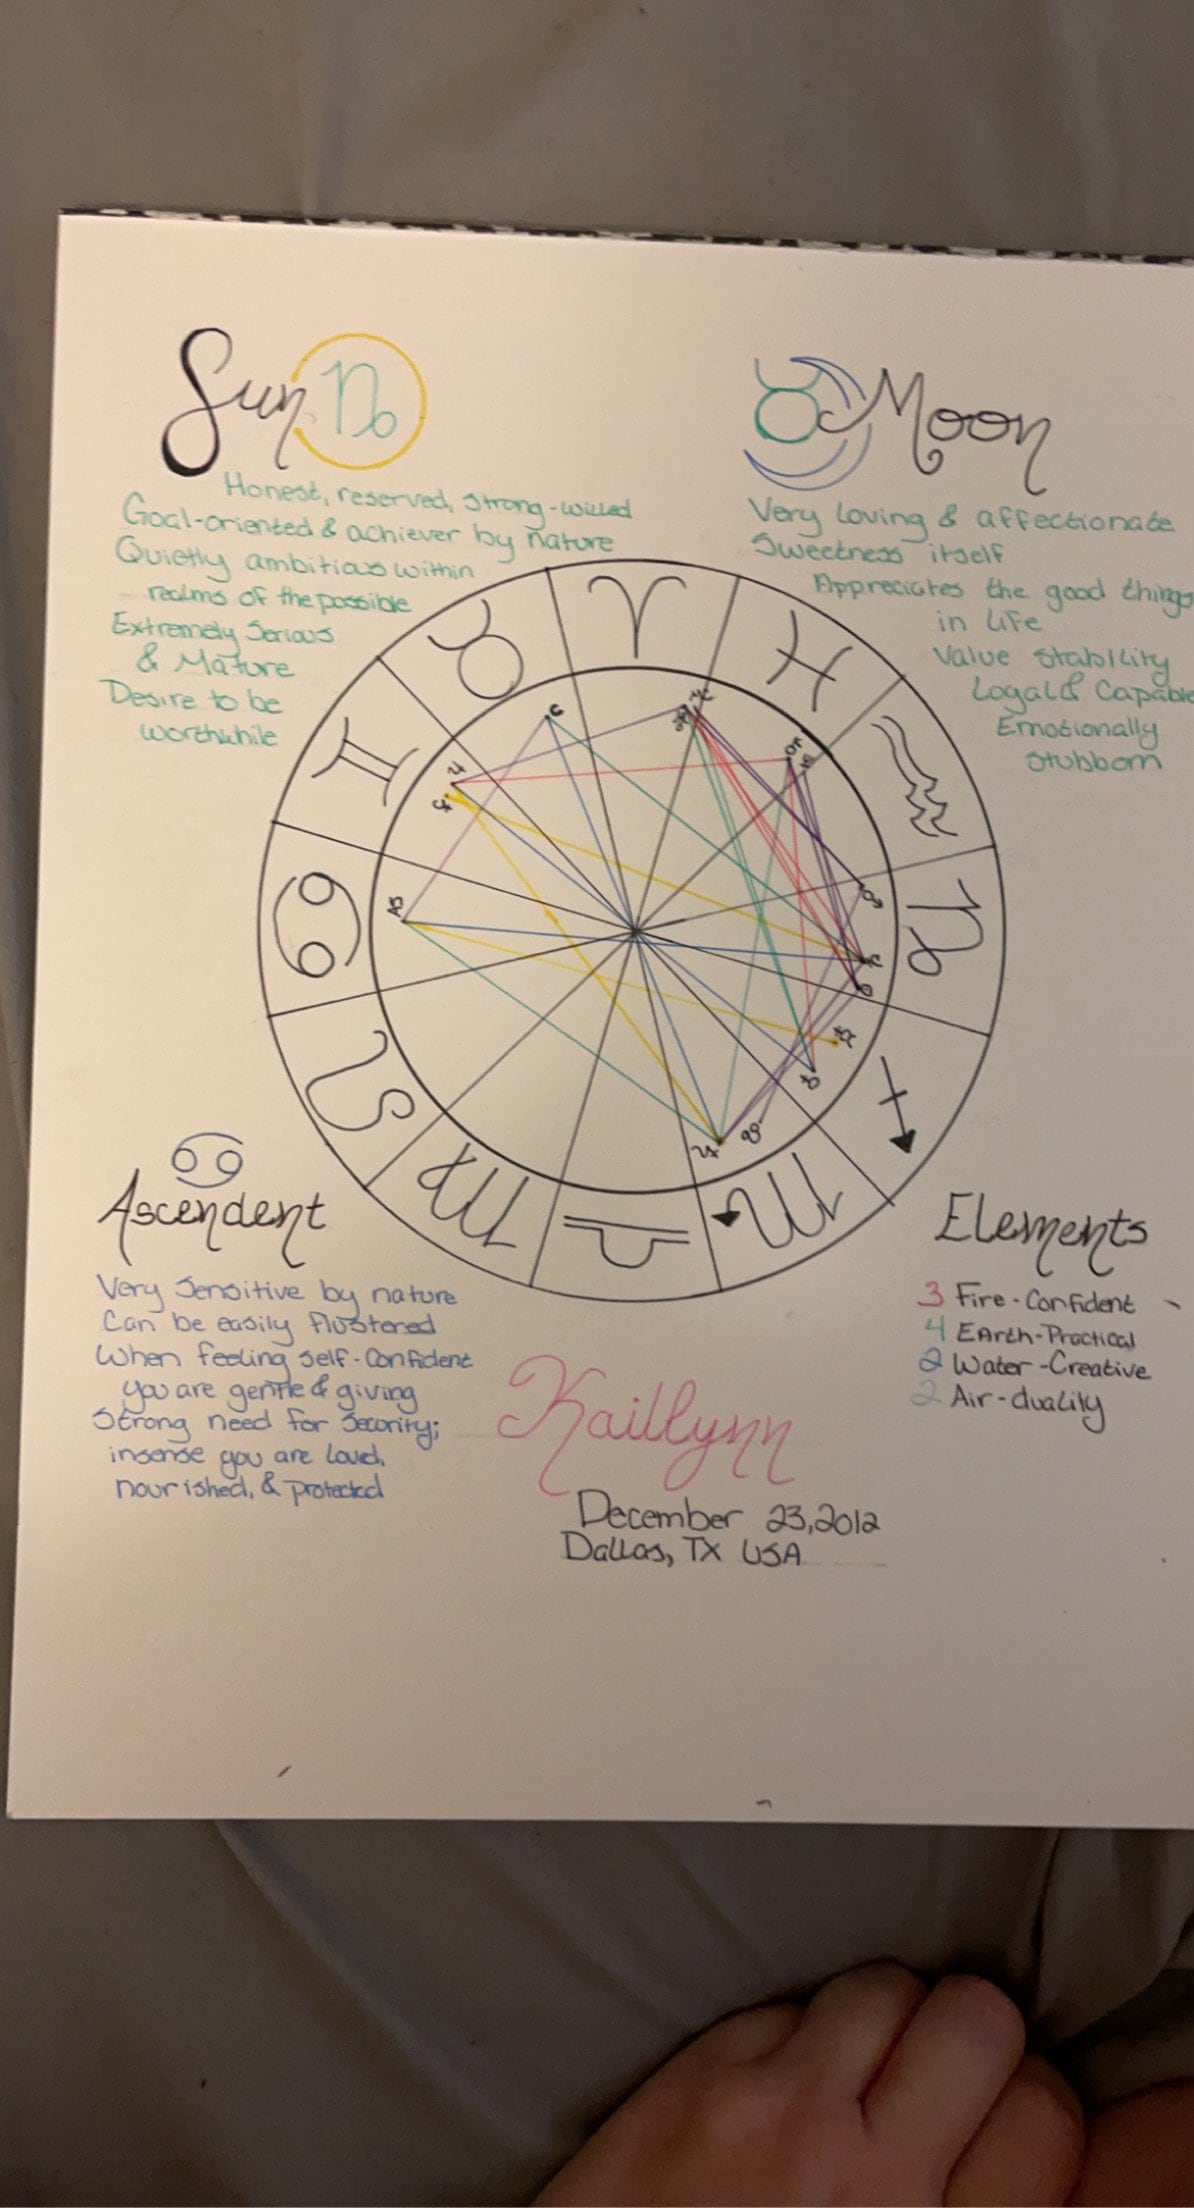 Sun
Honest, reserved, strong-willed
Goal-oriented & achiever by nature
Quietly ambitious within
realms of the possible
Extremely Serious
& Mature
Desire to be
worthwhile
Moon
Very loving & affectionate
Sweetness itself
Appreciates the good things
in life
Value Stability
Logal & Capable
Emotionally
Stubborn
Ascendent
Very Sensitive by nature
Can be easily flustered
When feeling self-Confident
you are gentle & giving
Strong need for Security;
insense you are loved,
nourished, & protected
Elements
3 Fire-Confident
4 EArth-Practical
2 Water-Creative
2 Air-duality
Kaillynn
December 23, 2012
Dallas, TX USA